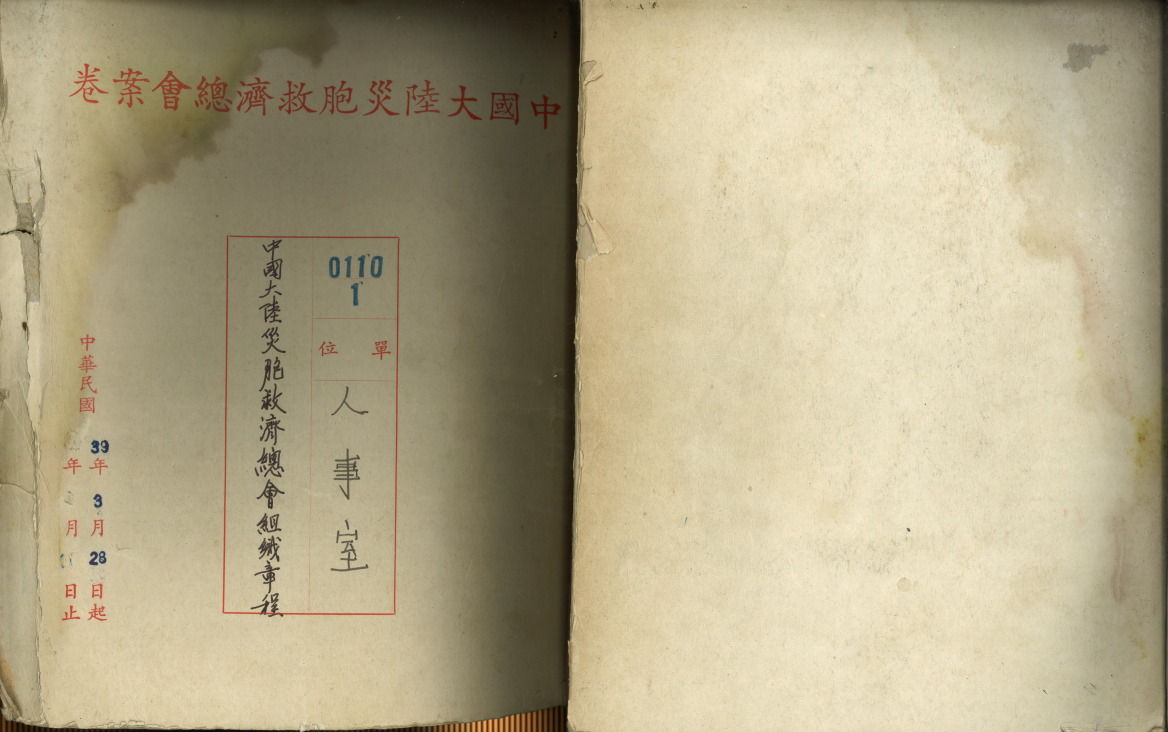 中國大陸災胞救濟總會案卷
0110
1
單位
人事室
中國大陸災胞救濟總會組織章程
中華民國
39年3月28日起
年 月 日止